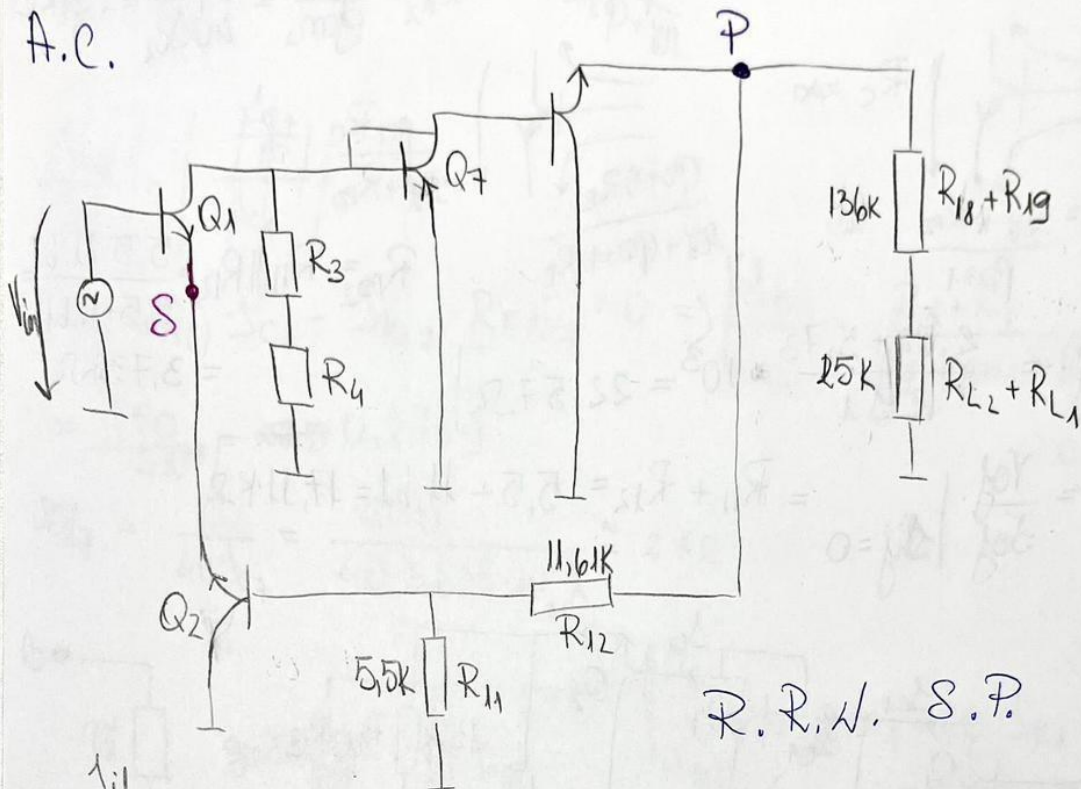 A.C.
P
Q1
Q7
Vin
S
R3
R4
136K
R18+R19
25K
RL2 + RL1
Q2
11,61K
R12
5,5K
R11
R.R.N. S.P.